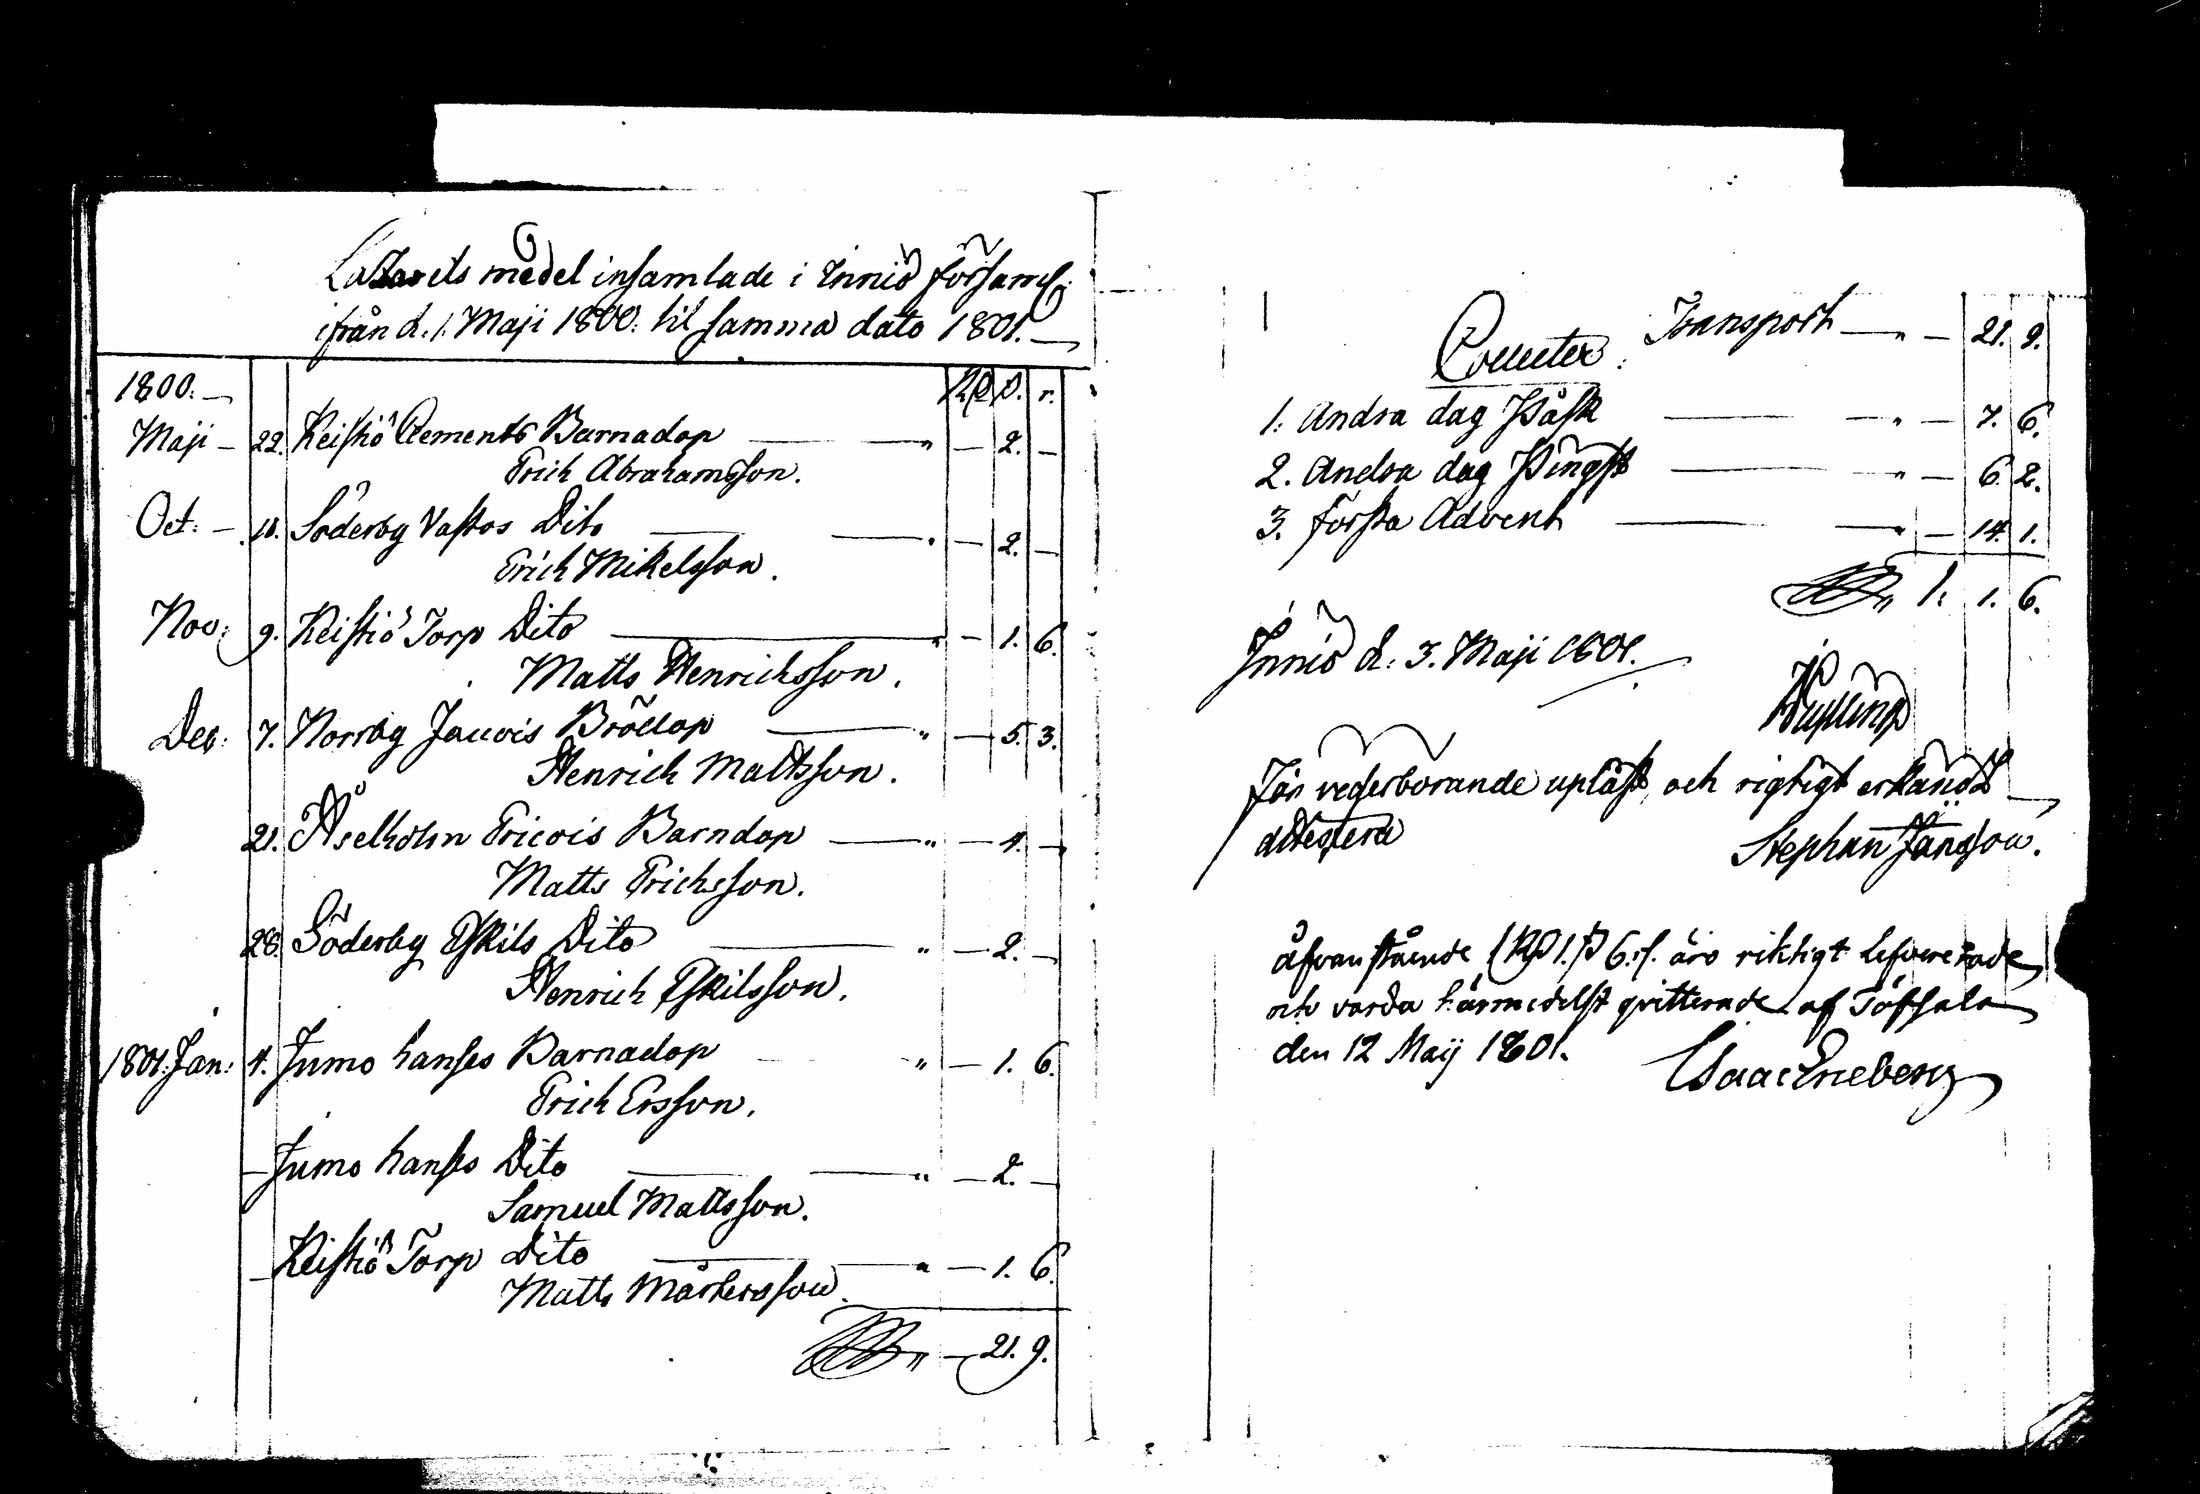 Lazarets medel insamlade i Inniö församl:
ifrån d. 1. Maji 1800. til samma dato 1801. —
1800. — Rd ß. r.
Maji — 22. Keistiö Clements Barnadop — " — 2. —
Erich Abrahamsson.
Oct: — 18. Söderby Vastos Dito — " — 2. —
Erich Mikelsson.
Nov: 9. Keistiö Torp Dito — " — 1. 6.
Matts Henrichsson.
Dec: 7. Norrby Jacois Bröllop — " — 5. 3.
Henrich Mattsson.
21. Åselholm Ericois Barndop — " — 4. —
Matts Erichsson.
28. Söderby Eskils Dito — " — 2. —
Henrich Eskilsson.
1801. Jan: 4. Jumo hanses Barnadop — " — 1. 6.
Erich Ersson.
— Jumo hanses Dito — " — 2. —
Samuel Mattsson.
— Keistiö Torp Dito — " — 1. 6.
Matts Mårtensson.
" — 21. 9.
Transport — " — 21. 9.
Collecter.
1. Andra dag Påsk — " — 7. 6.
2. Andra dag Pingst — " — 6. 2.
3. första Advent — " — 14. 1.
" 1. 1. 6.
Inniö d. 3. Maji 1801.
För vederbörande upläst och rigtigt erkändt
attestera Stephan Jansson.
åfvanstående 1 Rd 1. ß 6. r. äro riktigt lefvererade
och varda härmedelst qvitterade af Töfsala
den 12 Maij 1801.
Isaac Eneberg